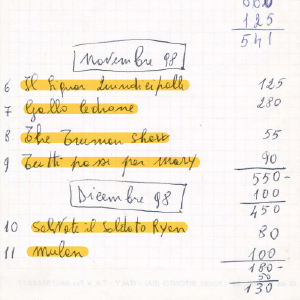 125
541
Novembre 98
6 Il Signor Quindicipalle 125
7 Gallo Cedrone 280
8 The Truman Show 55
9 Tutti pazzi per Mary 90
550-
100
450
Dicembre 98
10 Salvate il Soldato Ryan 80
11 Mulan 100
180-
50
130